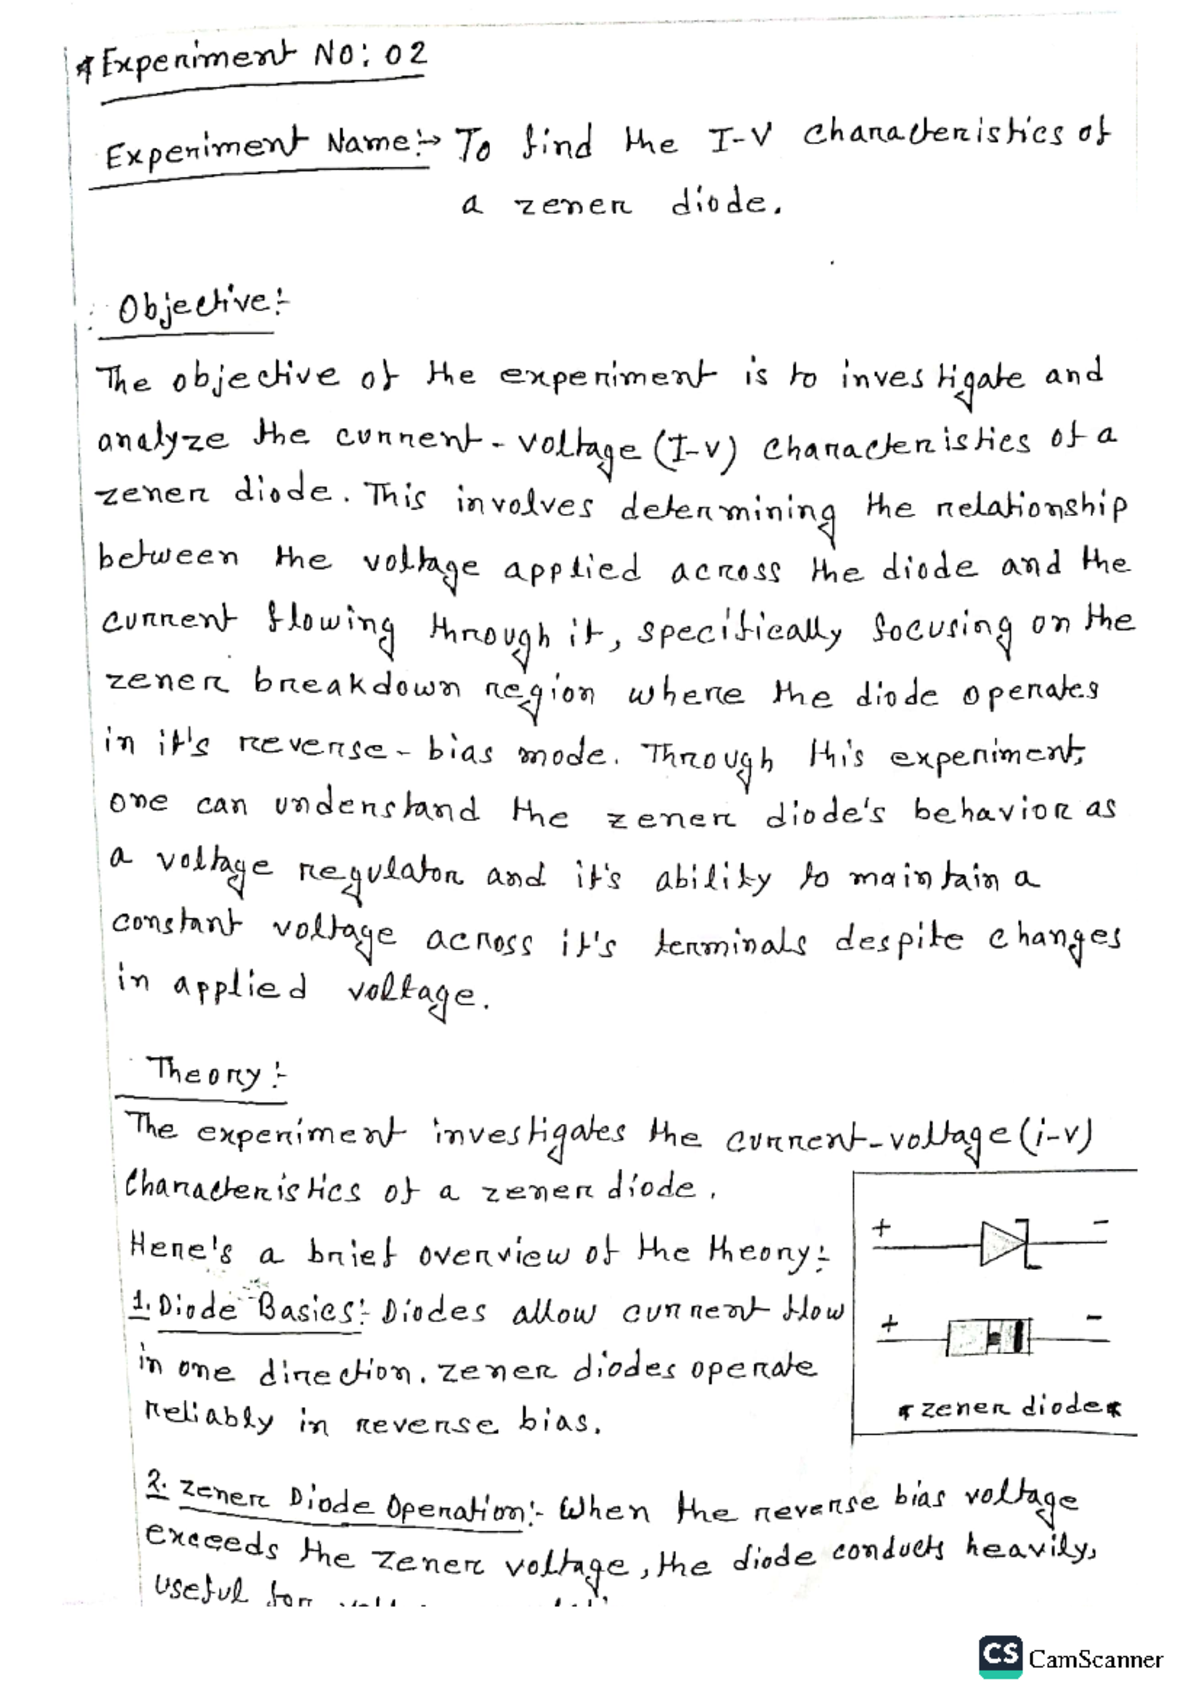 * Experiment No: 02
Experiment Name:→ To find the I-V characteristics of
a zener diode.
Objective:-
The objective of the experiment is to investigate and
analyze the current-voltage (I-V) characteristics of a
zener diode. This involves determining the relationship
between the voltage applied across the diode and the
current flowing through it, specifically focusing on the
zener breakdown region where the diode operates
in it's reverse-bias mode. Through this experiment,
one can understand the zener diode's behavior as
a voltage regulator and it's ability to maintain a
constant voltage across it's terminals despite changes
in applied voltage.
Theory:-
The experiment investigates the current-voltage (i-v)
Characteristics of a zener diode.
Here's a brief overview of the theory:-
1. Diode Basics:- Diodes allow current flow
in one direction. zener diodes operate
reliably in reverse bias.
+ -
+ -
* zener diode *
2. Zener Diode Operation:- When the reverse bias voltage
exceeds the zener voltage, the diode conducts heavily,
useful for
CS CamScanner